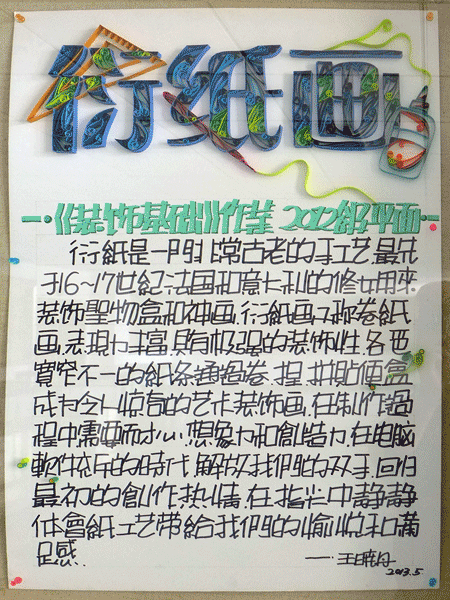 衍纸画
《装饰基础》作業 2012級平面
衍紙是一門非常古老的手工艺.最先
于16～17世紀.法国和意大利的修女用來
装飾聖物盒和神画.衍紙画又称卷紙
画.表現力丰富.具有极强的装饰性.各西
寬窄不一的紙条通過卷.捏.拼貼便盒
成为令人惊奇的艺术装饰画.在制作過
程中需要耐心.想象力和創造力.在电脑
軟件充斥的時代.解放我們的双手.回归
最初的創作热情.在指尖中静静
体會紙工艺帶給我們的愉悦和滿
足感.
2013.5